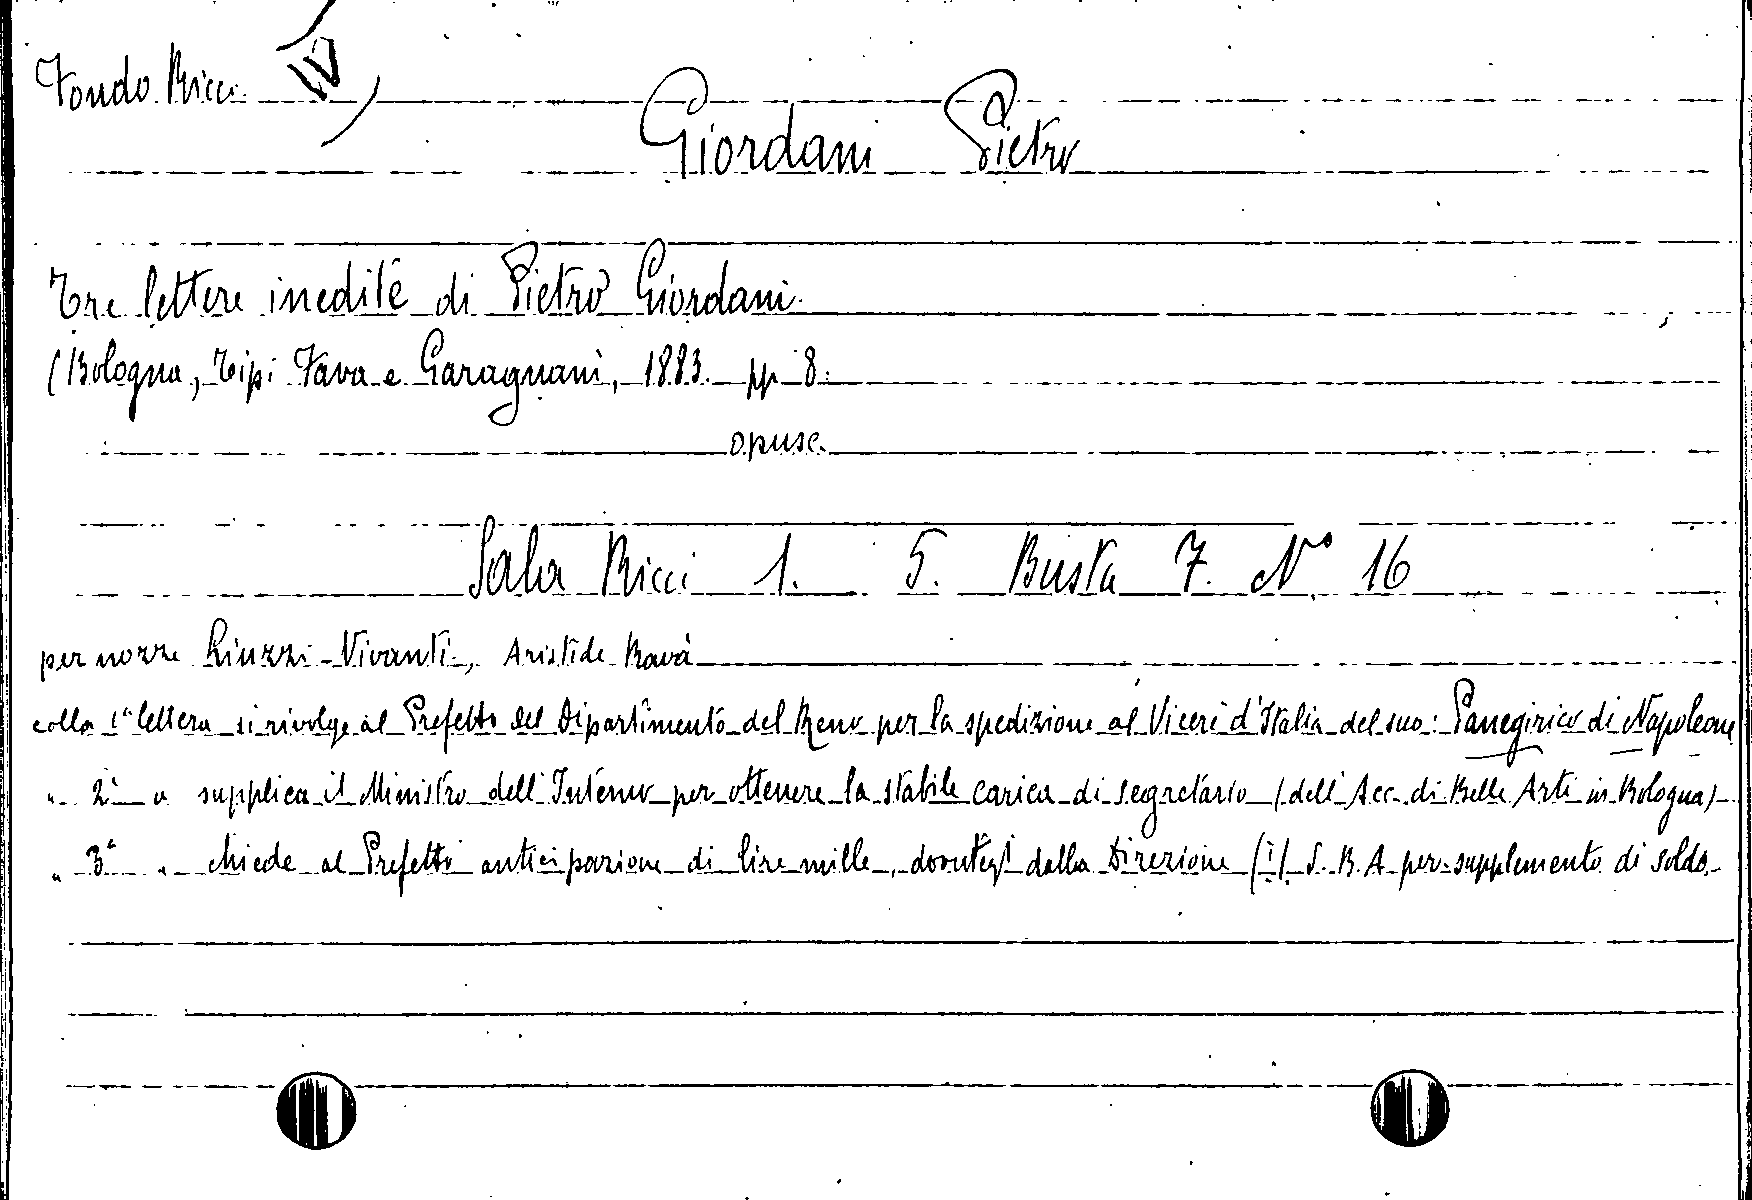 Fondo Ricci
Giordani Pietro
Tre lettere inedite di Pietro Giordani.
(Bologna, Tipi Fava e Garagnani, 1883. pp 8.
opusc.
Sala Ricci 1. 5. Busta 7. N° 16
per nozze Vivanti, Aristide Ravà
colla 1ª lettera si rivolge al Prefetto del Dipartimento del Reno per la spedizione al Viceré d'Italia del suo: Panegirico di Napoleone
" 2ª " supplica il Ministro dell'Interno per ottenere la stabile carica di segretario (dell'Acc. di Belle Arti in Bologna)
" 3ª " chiede al Prefetto anticipazione di lire mille, dalla Direzione (i) S. B. A. per supplemento di soldo.